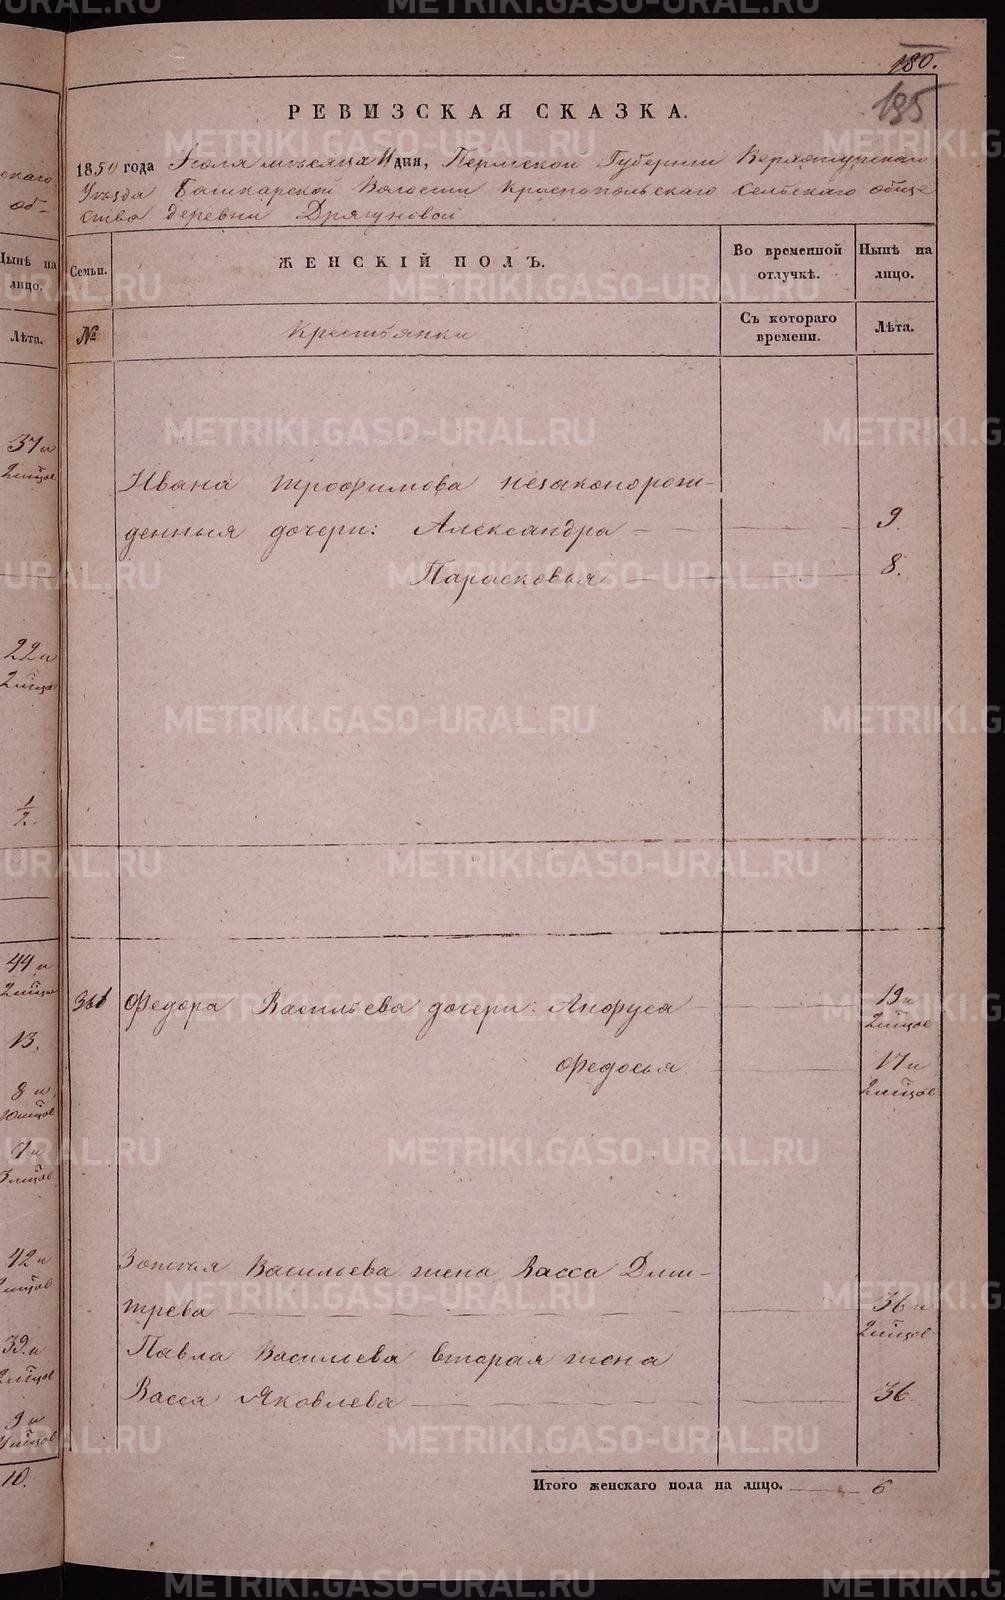 180.
195
РЕВИЗСКАЯ СКАЗКА.
1850 года Июля месяца 11 дня, Пермской Губернии Верхотурскаго
Уезда Башкарской Волости Краснопольскаго Сельскаго обще
ства деревни Дрягуновой
Семьи.
ЖЕНСКІЙ ПОЛЪ.
Во временной отлучкѣ.
Нынѣ на лицо.
№
Крестьянки
Съ котораго времени.
Лѣта.
Ивана Трофимова незаконорож-
денныя дочери: Александра — 9.
Парасковья — 8.
Федора Васильева дочери: Анфуса 19 и 2 мѣсяцов
Федосья 17 и 2 мѣсяцов
Васильева жена Васса Дми-
трева — 36 и 2 мѣсяцов
Павла Васильева вторая жена
Васса Яковлева — 36.
Итого женскаго пола на лицо. 6
Нынѣ на лицо.
Лѣта.
37 и
2 мѣсяцов
22 и
2 мѣсяцов
1/2.
44 и
2 мѣсяцов
13.
8 и
10 мѣсяцов
42 и
2 мѣсяцов
39 и
2 мѣсяцов
9 и
10.
METRIKI.GASO-URAL.RU